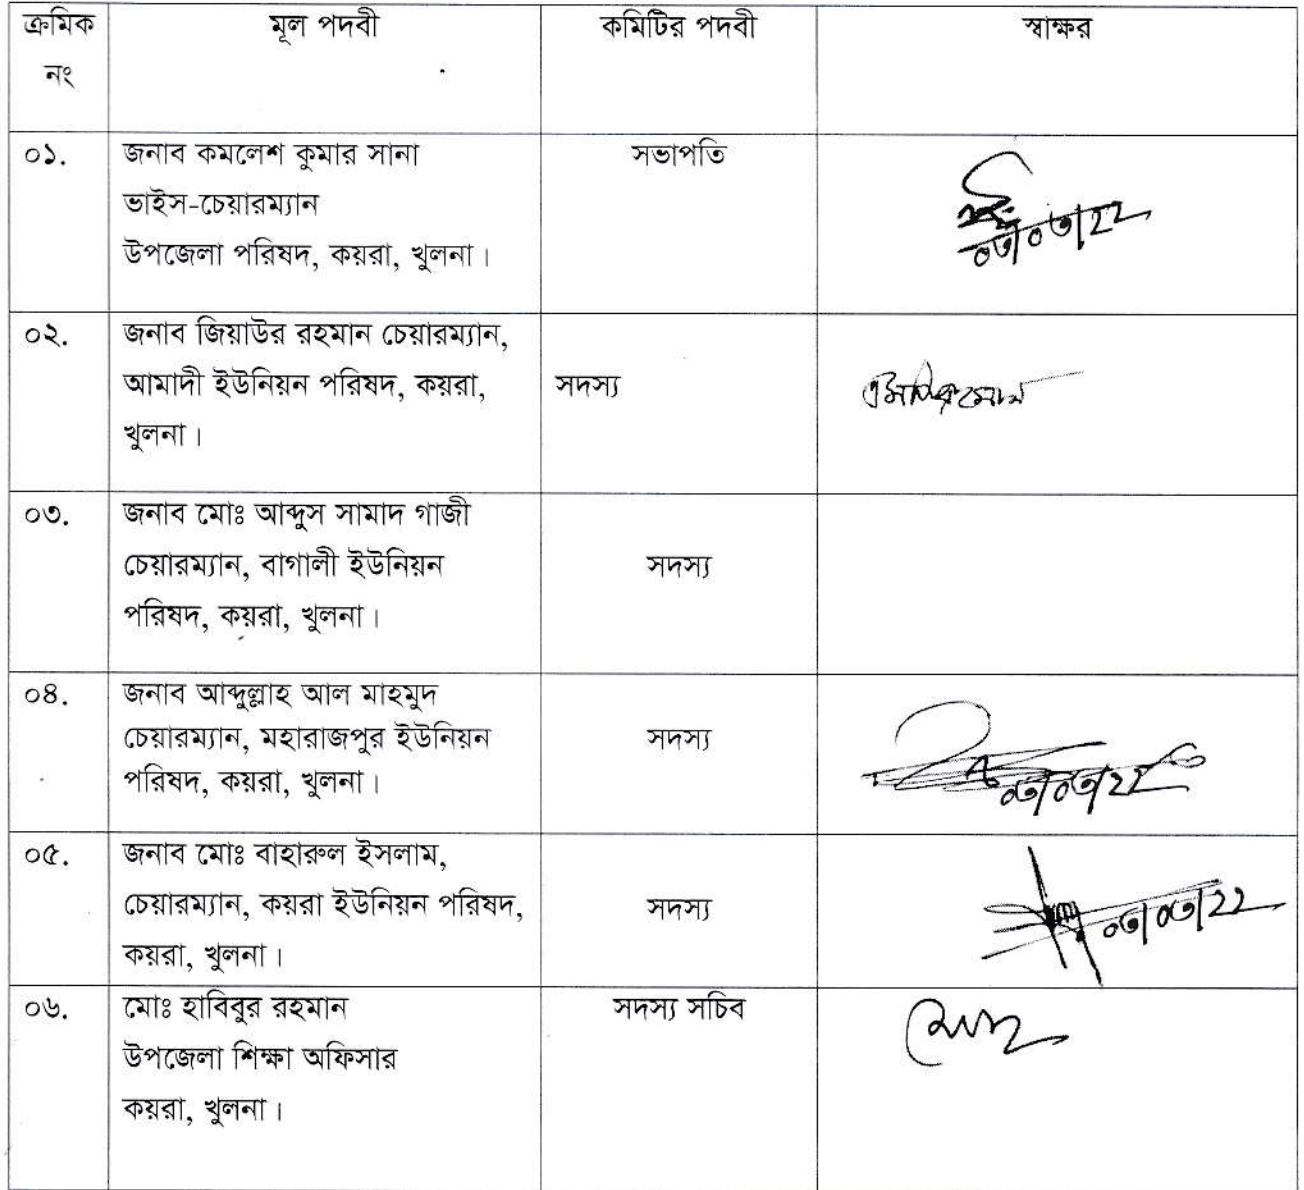 ক্রমিক নং মূল পদবী কমিটির পদবী স্বাক্ষর
০১. জনাব কমলেশ কুমার সানা সভাপতি
ভাইস-চেয়ারম্যান
উপজেলা পরিষদ, কয়রা, খুলনা।
০৩/০৩/২২
০২. জনাব জিয়াউর রহমান চেয়ারম্যান,
আমাদী ইউনিয়ন পরিষদ, কয়রা, সদস্য
খুলনা।
০৩. জনাব মোঃ আব্দুস সামাদ গাজী
চেয়ারম্যান, বাগালী ইউনিয়ন সদস্য
পরিষদ, কয়রা, খুলনা।
০৪. জনাব আব্দুল্লাহ আল মাহমুদ
চেয়ারম্যান, মহারাজপুর ইউনিয়ন সদস্য
পরিষদ, কয়রা, খুলনা।
০৩/০৩/২২
০৫. জনাব মোঃ বাহারুল ইসলাম,
চেয়ারম্যান, কয়রা ইউনিয়ন পরিষদ, সদস্য
কয়রা, খুলনা।
০৩/০৩/২২
০৬. মোঃ হাবিবুর রহমান সদস্য সচিব
উপজেলা শিক্ষা অফিসার
কয়রা, খুলনা।